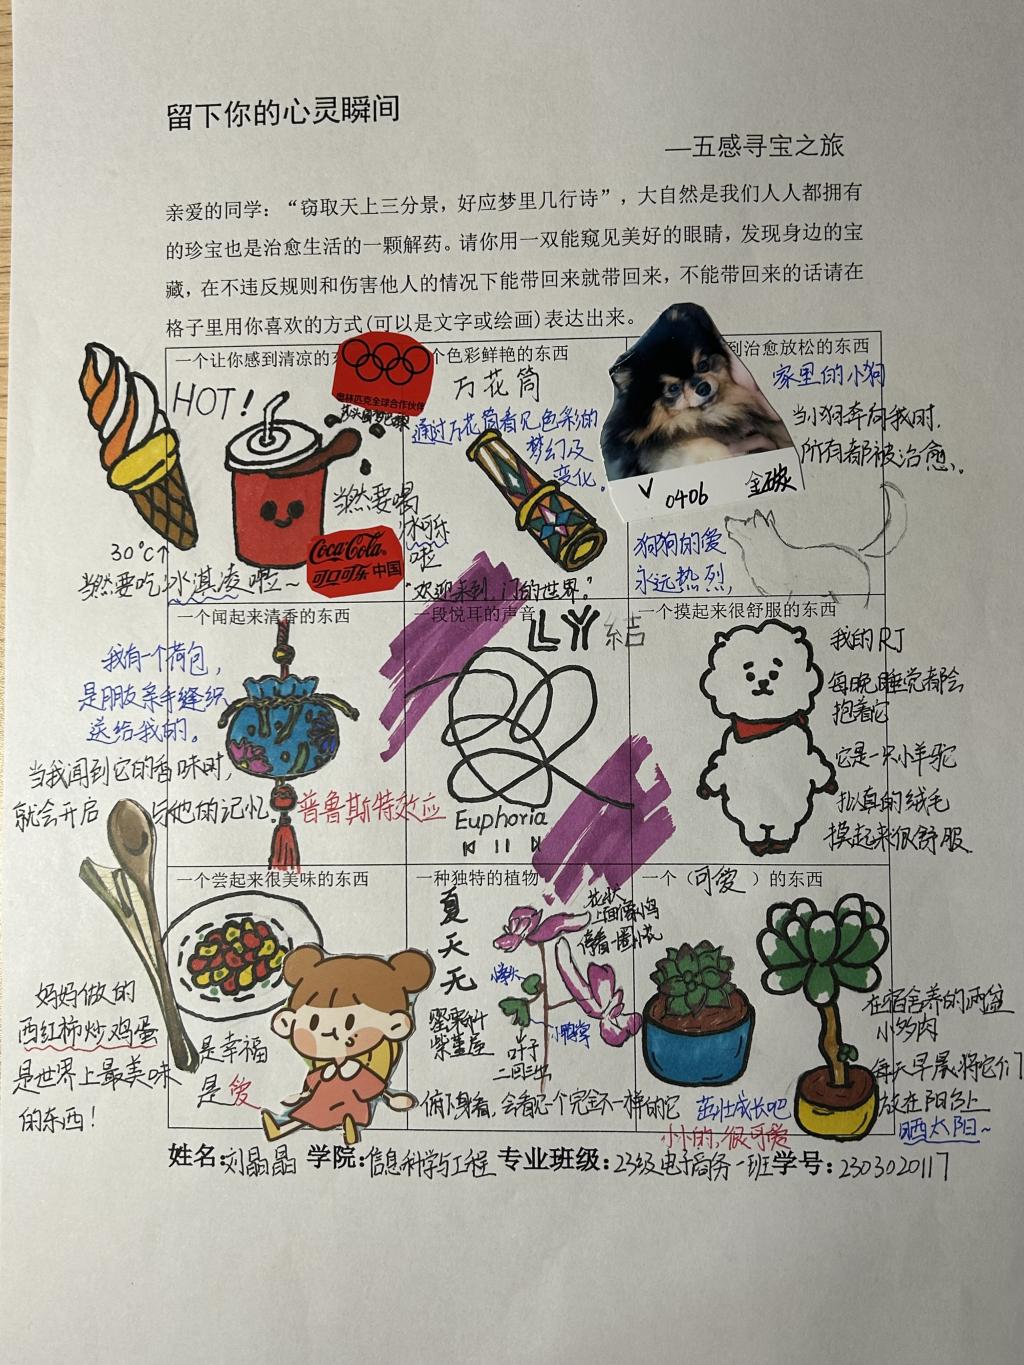 留下你的心灵瞬间
—五感寻宝之旅
亲爱的同学：“窃取天上三分景，好应梦里几行诗”，大自然是我们人人都拥有
的珍宝也是治愈生活的一颗解药。请你用一双能窥见美好的眼睛，发现身边的宝
藏，在不违反规则和伤害他人的情况下能带回来就带回来，不能带回来的话请在
格子里用你喜欢的方式(可以是文字或绘画)表达出来。
一个让你感到清凉的
HOT!
奥林匹克全球合作伙伴
当然要喝
冰可乐
啦
Coca-Cola
可口可乐 中国
30°C↑
当然要吃冰淇凌啦~
个色彩鲜艳的东西
万花筒
通过万花筒看见色彩的
梦幻及
变化。
“欢迎来到 门的世界。”
到治愈放松的东西
家里的小狗
当小狗奔向我时，
所有都被治愈、。
0406
狗狗的爱
永远热烈，
一个闻起来清香的东西
我有一个荷包，
是朋友亲手缝织
送给我的。
当我闻到它的香味时，
就会开启 与他的记忆。
普鲁斯特效应
一段悦耳的声音
LY 結
Euphoria
一个摸起来很舒服的东西
我的RJ
每晚睡觉都会
抱着它
它是一只小羊驼
扒真的绒毛
摸起来很舒服
一个尝起来很美味的东西
妈妈做的
西红柿炒鸡蛋
是世界上最美味
的东西！
是幸福
是爱
一种独特的植物
夏
天
无
罂粟科
紫堇属
花状
上面像小鸟
叶子
二回三出
俯下身看，会看见一个完全不一样的它
一个（可爱 ）的东西
在宿舍养的两盆
小多肉
每天早晨将它们
放在阳台上
晒太阳~
茁壮成长吧
小小的，很可爱
姓名：刘晶晶 学院：信息科学与工程 专业班级：23级电子商务一班 学号：2303020117